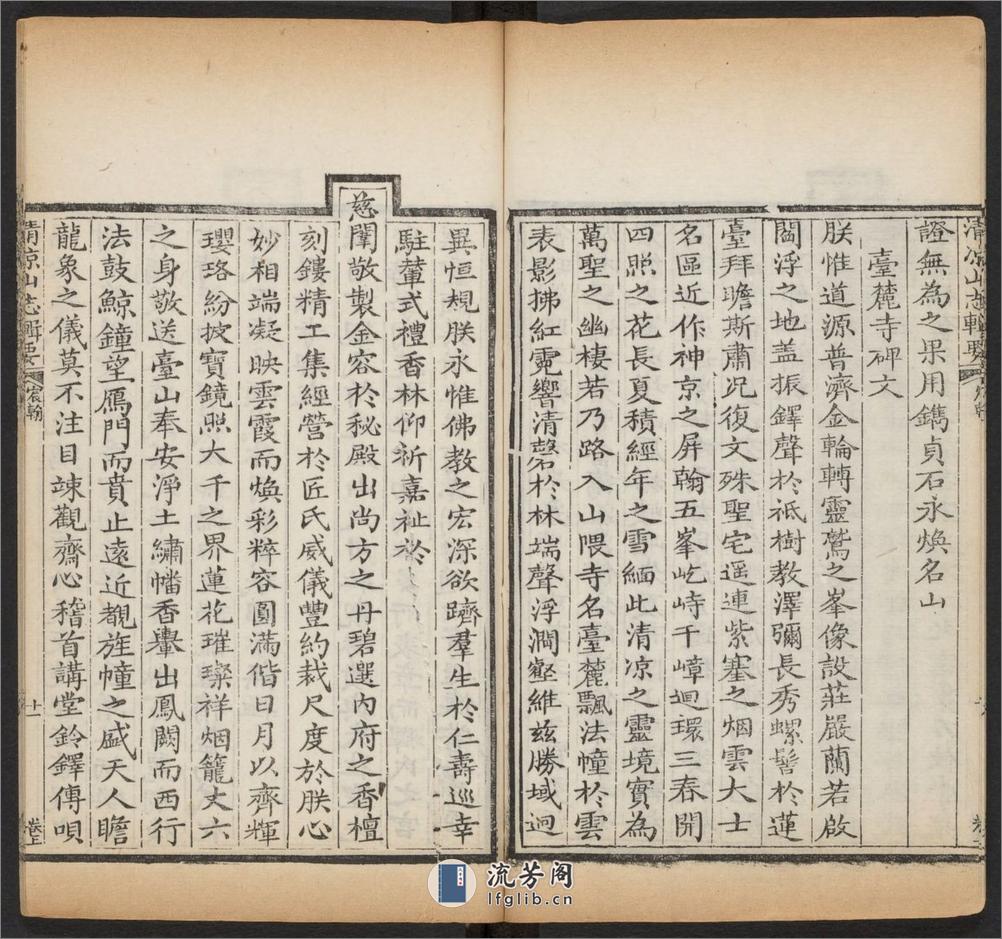 清涼山志輯要
證無為之果用鐫貞石永煥名山
臺麓寺碑文
朕惟道源普濟金輪轉靈鷲之峯像設莊嚴蘭若啟
閻浮之地盖振鐸聲於祇樹教澤彌長秀螺髻於蓮
臺拜瞻斯肅况復文殊聖宅遥連紫塞之烟雲大士
名區近作神京之屏翰五峯屹峙千嶂迴環三春開
四照之花長夏積經年之雪緬此清涼之靈境實為
萬聖之幽棲若乃路入山隈寺名臺麓飄法幢於雲
表影拂紅霓響清磬於林端聲浮澗壑維兹勝域迥
異恒規朕永惟佛教之宏深欲躋羣生於仁壽巡幸
駐輦式禮香林仰祈嘉祉於
慈闈敬製金容於秘殿出尚方之丹碧選內府之香檀
刻鏤精工集經營於匠氏威儀豐約裁尺度於朕心
妙相端凝映雲霞而煥彩粹容圓滿偕日月以齊輝
瓔珞紛披寶鏡照大千之界蓮花璀璨祥烟籠丈六
之身敬送臺山奉安淨土繡幡香轝出鳳闕而西行
法鼓鯨鐘望鴈門而賁止遠近覩旌幢之盛天人瞻
龍象之儀莫不注目竦觀齋心稽首講堂鈴鐸傳唄
清涼山志輯要 宸翰 十一 卷上
流芳阁
lfglib.cn